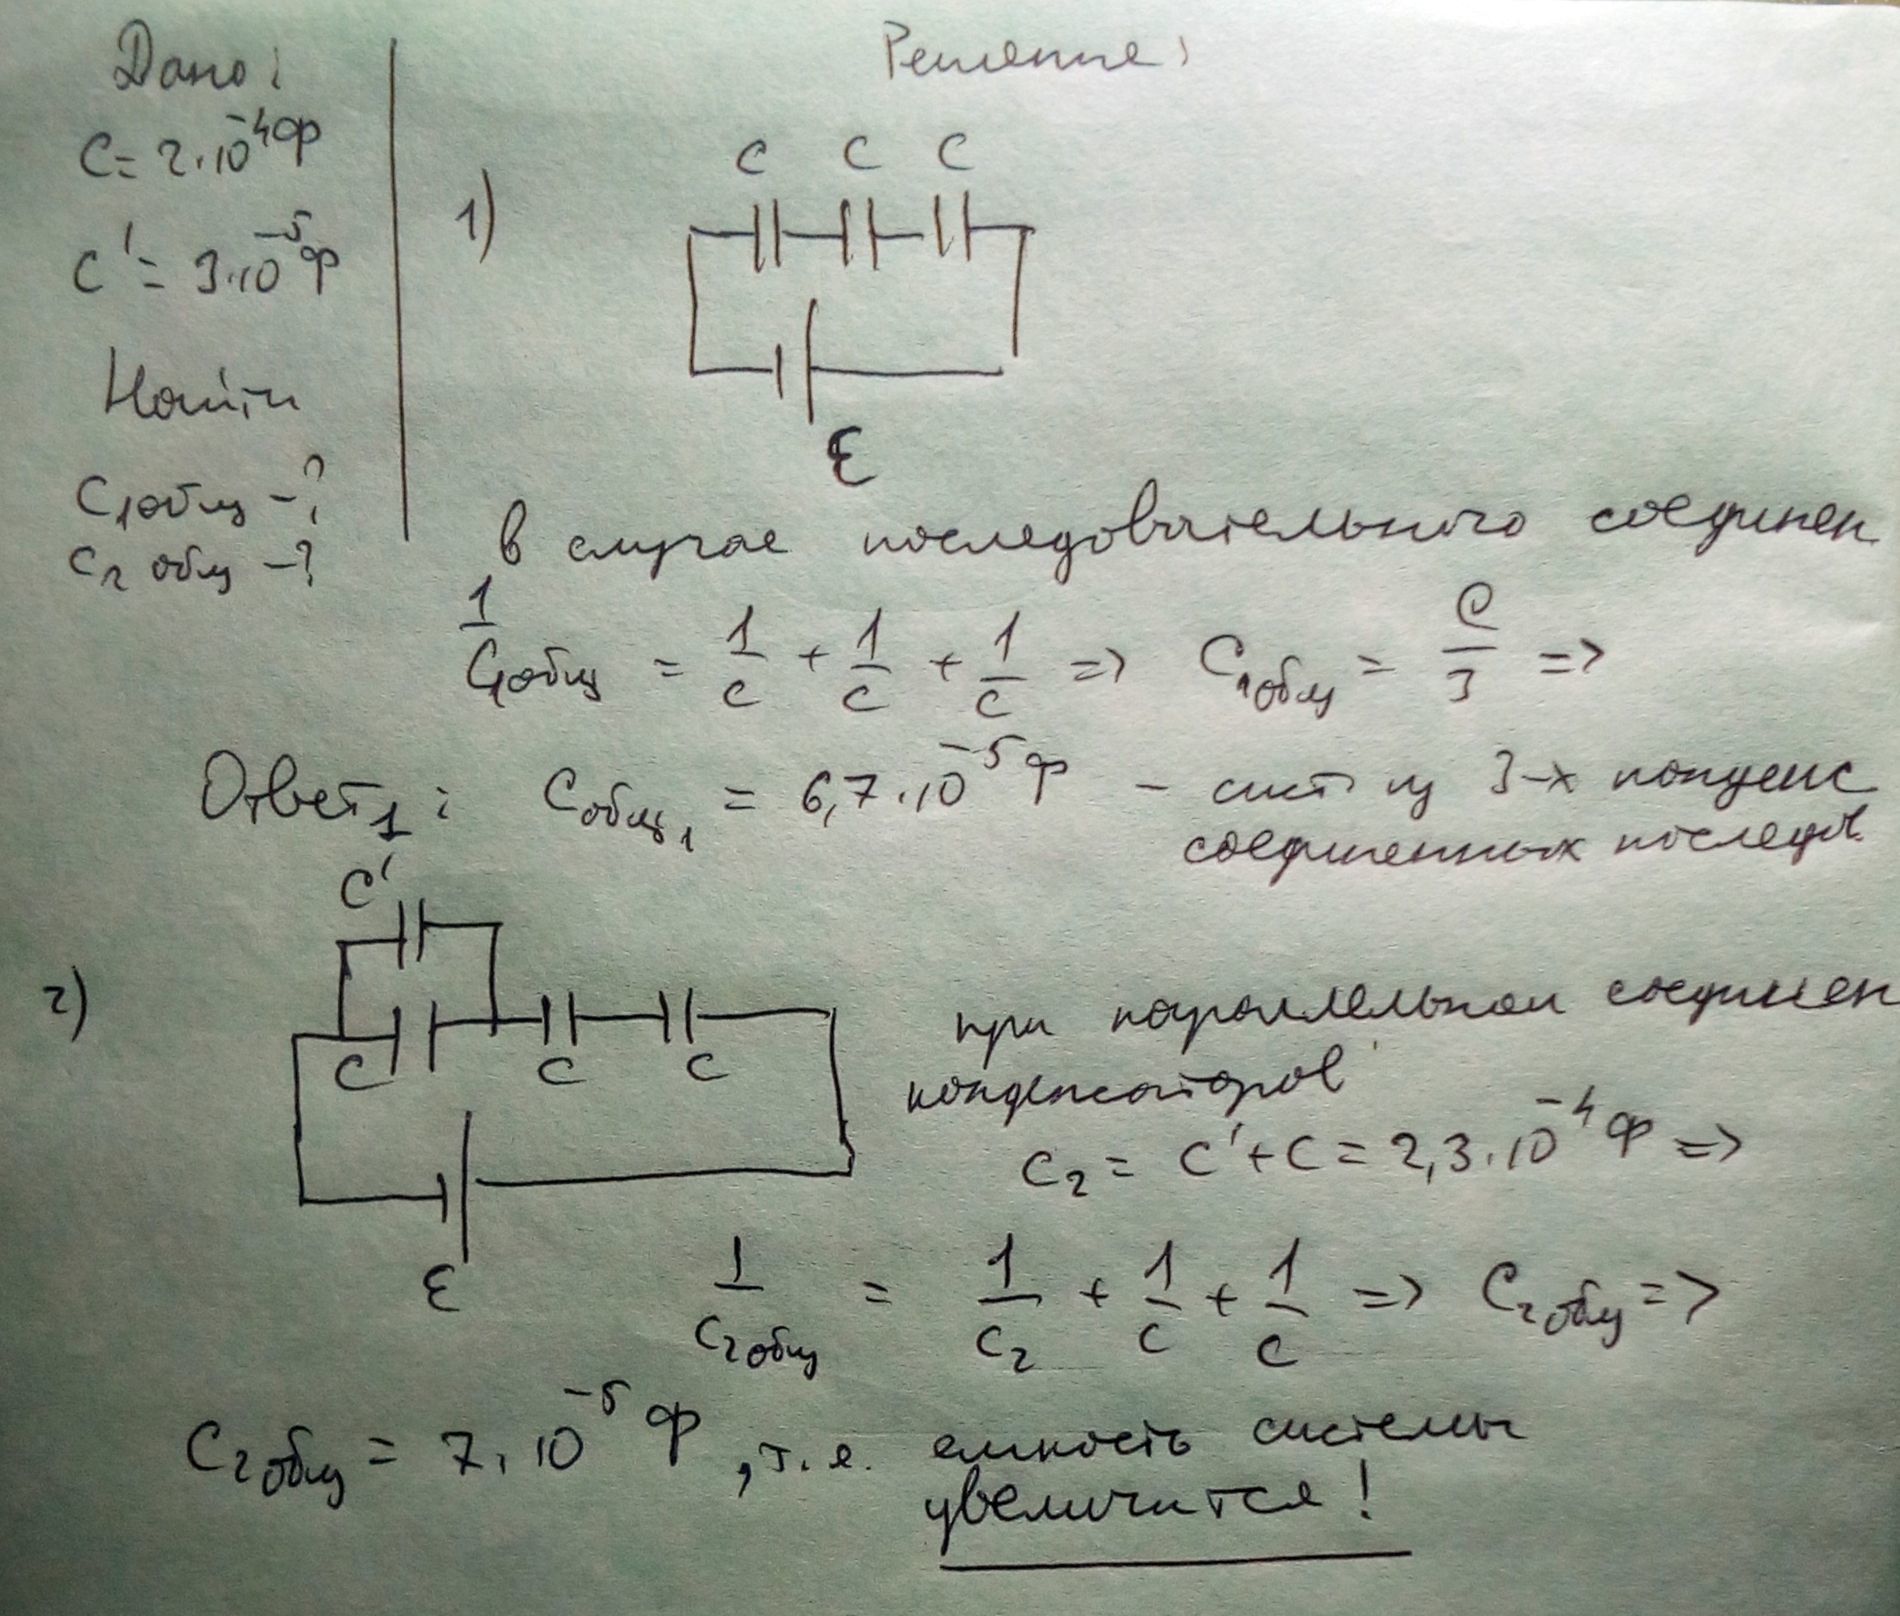 Дано:
C = 2·10⁻⁴ Ф
C' = 3·10⁻⁵ Ф
Найти
C₁общ -?
C₂ общ -?
Решение:
1)
C C C
ℰ
в случае последовательного соединен
1/C₁общ = 1/C + 1/C + 1/C => C₁общ = C/3 =>
Ответ₁: Cобщ₁ = 6,7·10⁻⁵ Ф - сист из 3-х конденс
соединенных последов
2)
C'
C C C
ℰ
при параллельном соединен
конденсаторов
C₂ = C' + C = 2,3·10⁻⁴ Ф =>
1/C₂общ = 1/C₂ + 1/C + 1/C => C₂общ =>
C₂общ = 7·10⁻⁵ Ф, т.е. емкость системы
увеличится!